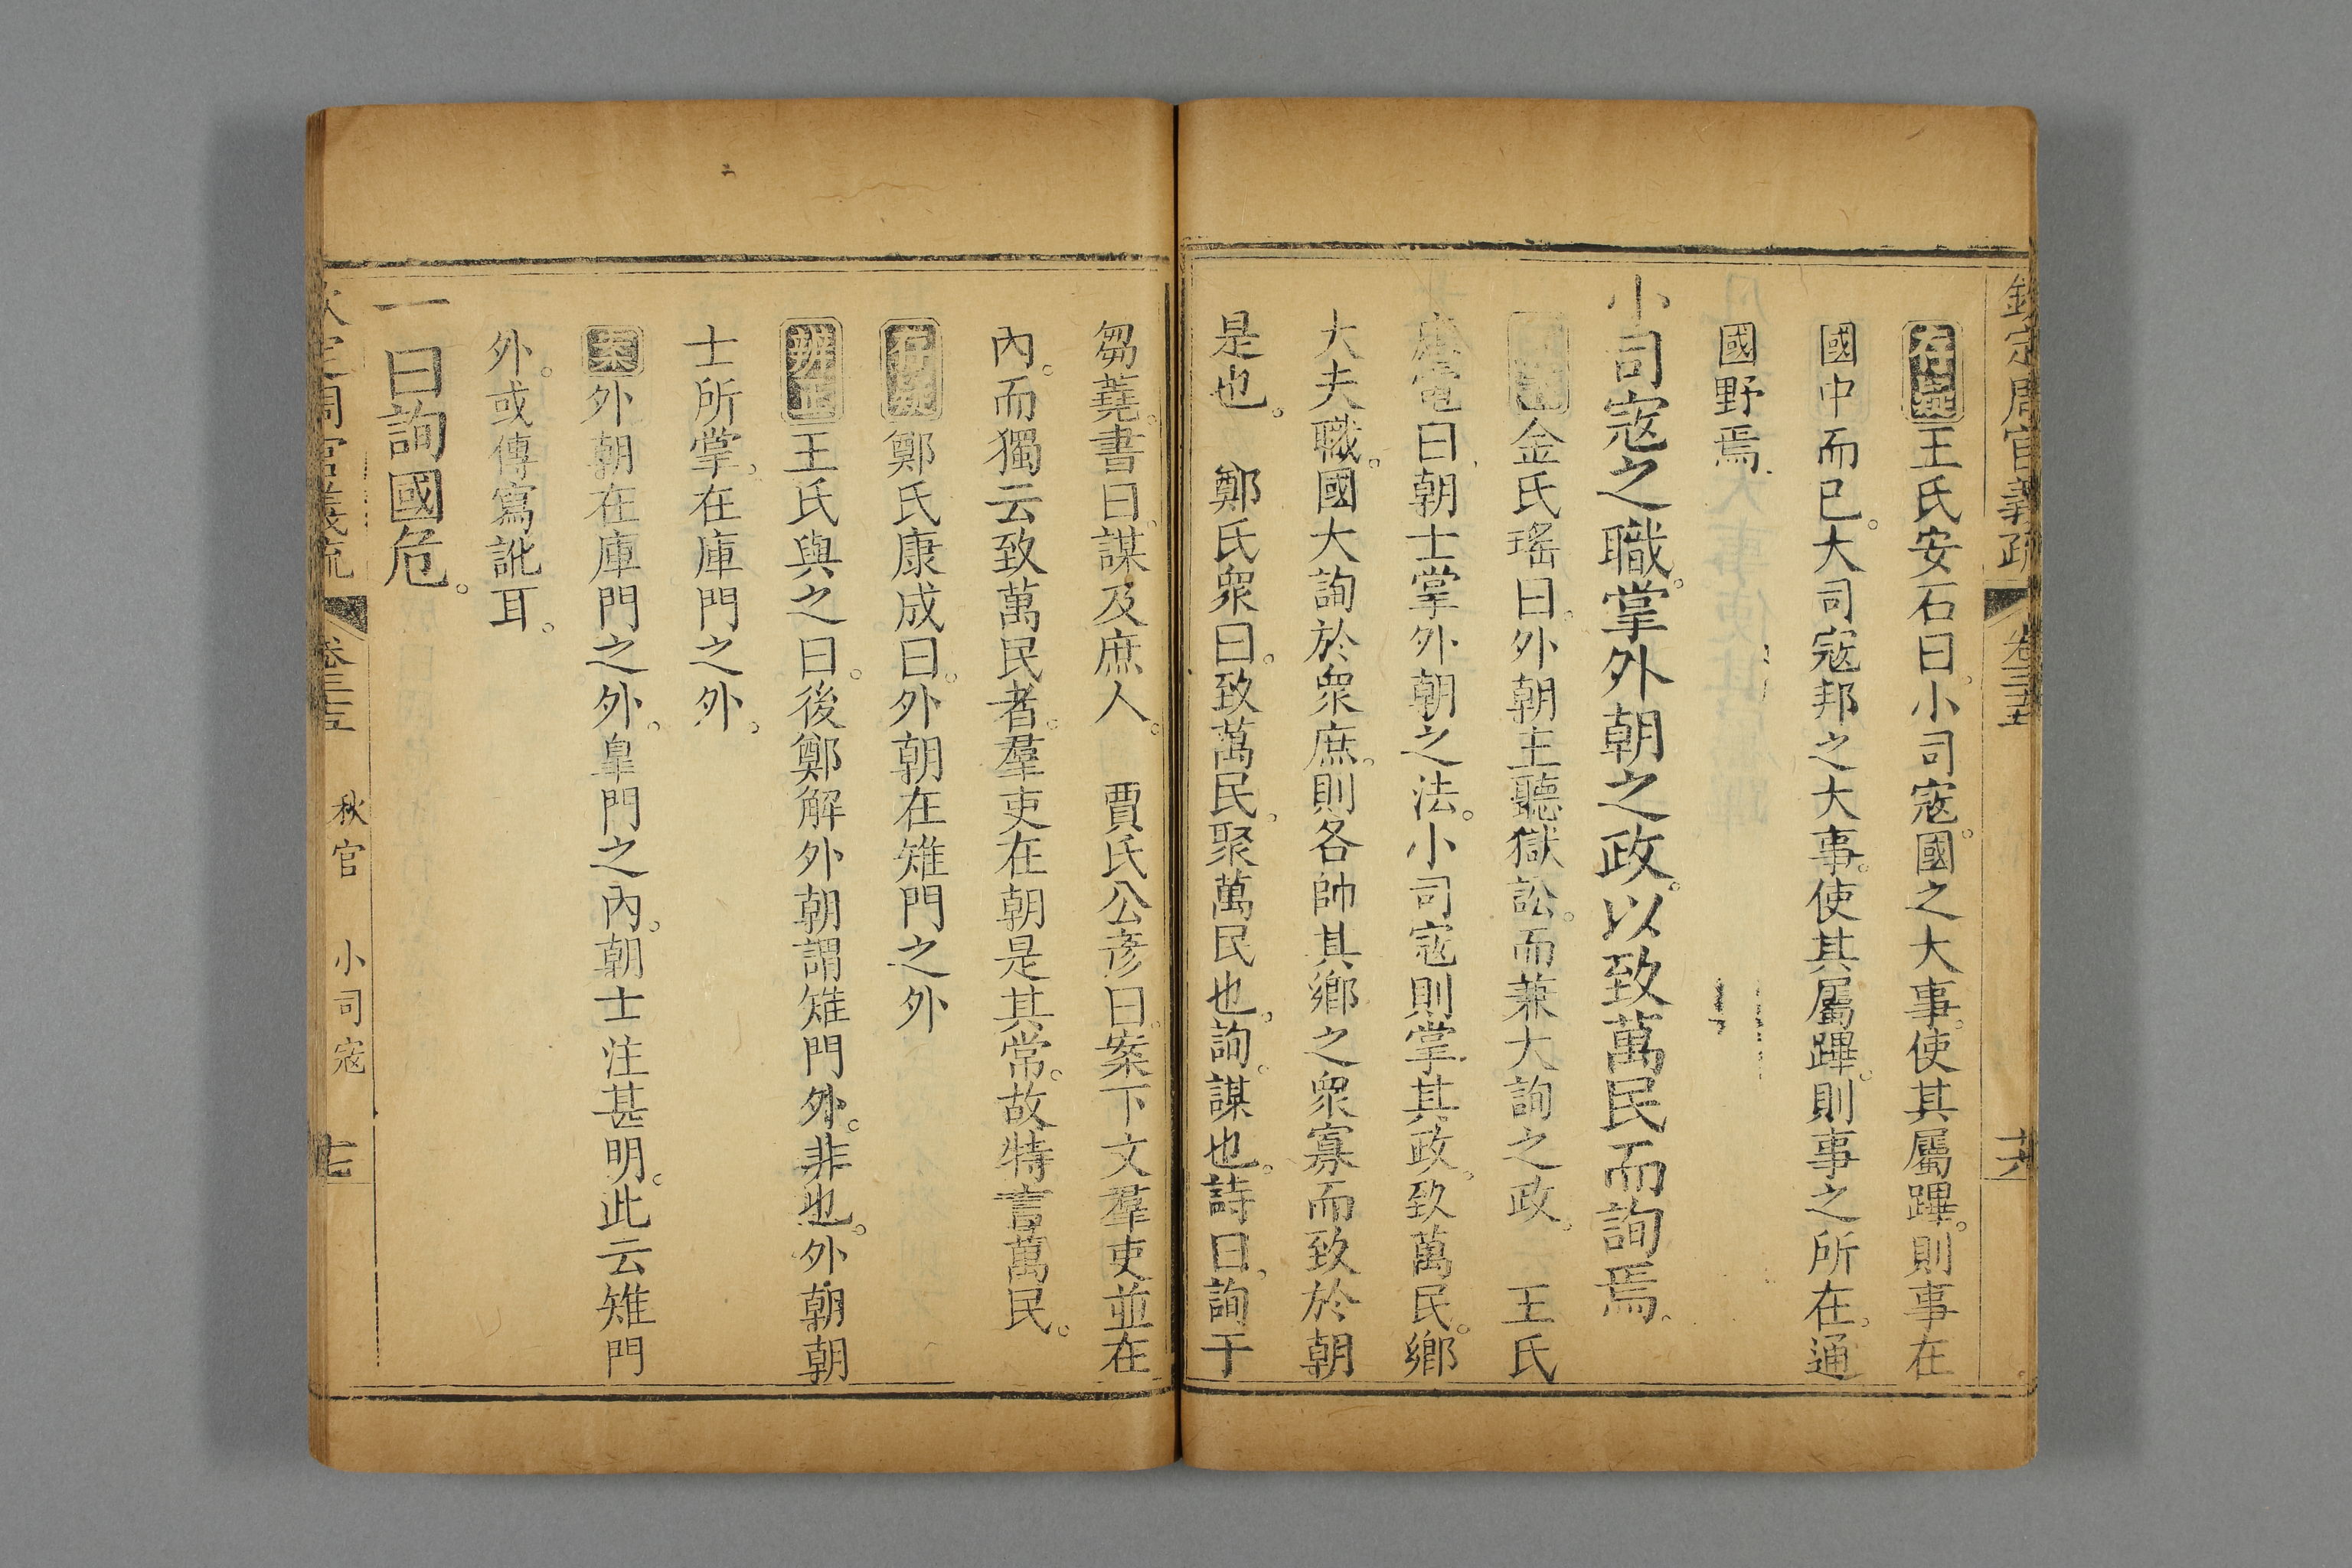 欽定周官義疏 卷三十五 十六
存疑 王氏安石曰。小司寇。國之大事。使其屬蹕。則事在
國中而已。大司寇邦之大事。使其屬蹕。則事之所在。通
國野焉。
小司寇之職。掌外朝之政。以致萬民而詢焉。
金氏瑤曰。外朝主聽獄訟。而兼大詢之政。 王氏
應電曰。朝士掌外朝之法。小司寇則掌其政。致萬民。鄉
大夫職。國大詢於衆庶。則各帥其鄉之衆寡而致於朝
是也。 鄭氏衆曰。致萬民。聚萬民也。詢。謀也。詩曰。詢于
芻蕘。書曰。謀及庶人。 賈氏公彥曰。案下文羣吏並在
內。而獨云致萬民者。羣吏在朝是其常。故特言萬民。
存疑 鄭氏康成曰。外朝在雉門之外
辨正 王氏與之曰。後鄭解外朝謂雉門外。非也。外朝朝
士所掌。在庫門之外。
案 外朝在庫門之外。皐門之內。朝士注甚明。此云雉門
外。或傳寫訛耳。
一曰詢國危。
欽定周官義疏 卷三十五 秋官 小司寇 十七